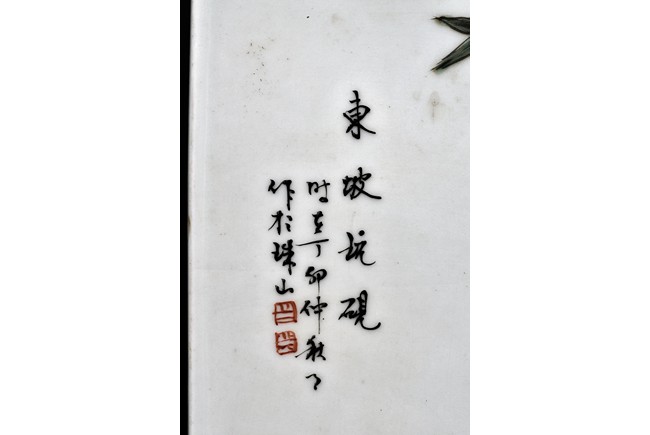 東坡玩硯
时在丁卯仲秋月
作於珠山